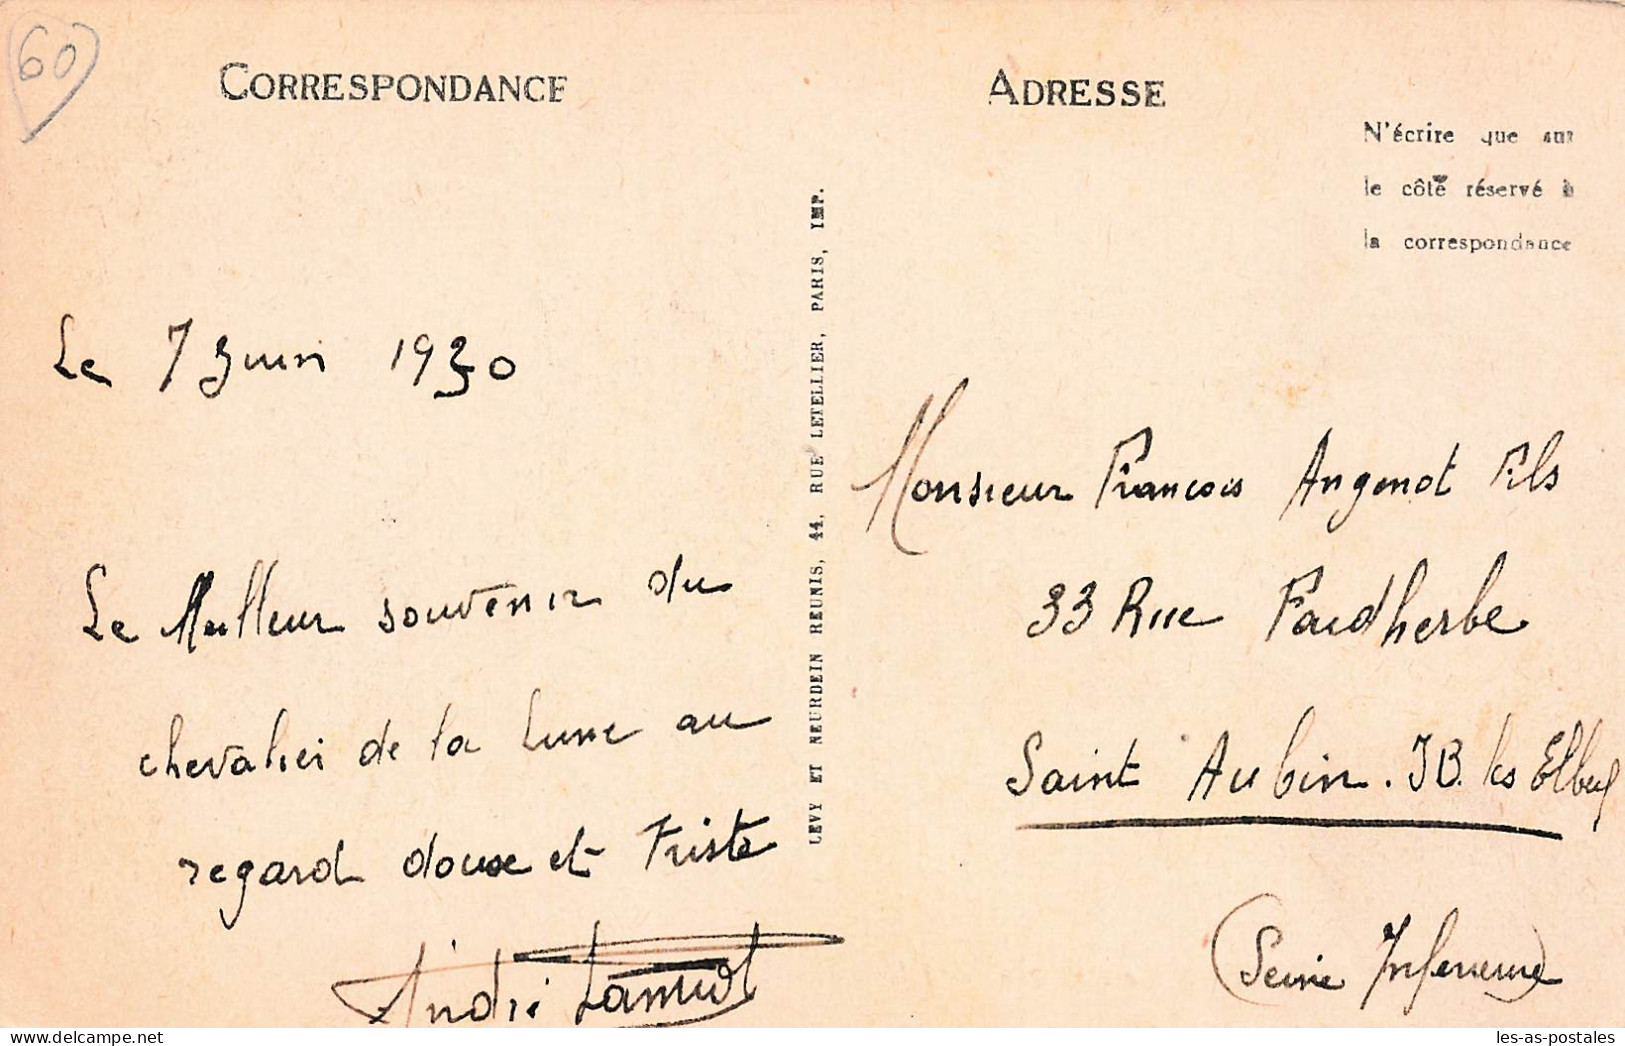 60
CORRESPONDANCE
Le 7 Juin 1930
Le Meilleur souvenir du
chevalier de la Lune au
regard douxe et Triste
André
LEVY ET NEURDEIN REUNIS, 44, RUE LETELLIER, PARIS, IMP.
ADRESSE
N'écrire que sur
le côté réservé à
la correspondance
Monsieur Francois Angenot Fils
33 Rue Faidherbe
Saint Aubin. JB. les Elbeuf
(Seine Inferieure)
les-as-postales